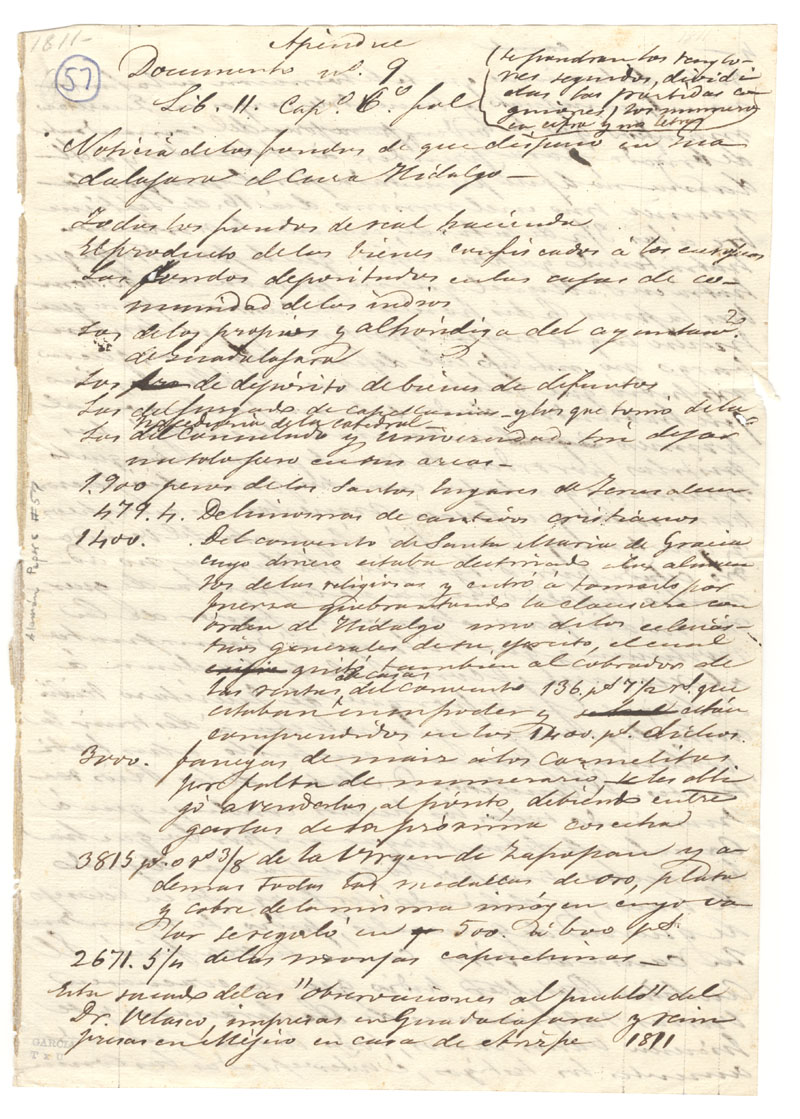 1811-
57
Apéndice
Documento nº. 9
Lib. II. Capº. 6º. fol
Se pondran los renglo-
nes seguidos, dividi
das las partidas con
guiones, los numeros
en cifras y no letra
Noticia de los fondos de que dispuso en Gua
dalajara el Cura Hidalgo—
Todos los fondos de real hacienda
El producto de los bienes confiscados á los europeos
Los fondos depositados en las cajas de co-
munidad de los indios
Los de los propios y alhóndiga del ayuntamto.
de Guadalajara
Los de depósito de bienes de difuntos
Los del juzgado de capellanias y los que tomó de la
haceduria de la Catedral—
Los del Consulado y universidad sin dejar
un solo peso en sus arcas—
1.900 pesos de los Santos lugares de Jerusalem
479.4. De limosnas de cautivos cristianos
1400. Del convento de Santa Maria de Gracia
cuyo dinero estaba destinado á los alimen
tos de las religiosas y entró á tomarlo por
fuerza quebrantando la clausura con
orden de Hidalgo uno de los eclesiás-
ticos generales de su ejercito, el cual
quitó tambien al cobrador de
las rentas de casas del convento 136. ps 7 1/2 rs. que
estaban en su poder y están
comprendidos en los 1400. ps. dichos.
3000. fanegas de maiz á los Carmelitas
por falta de numerario se les obli
gó a venderlas, al pósito, debiendo entre
garlas de la próxima cosecha
3815 ps. 0 rs 3/8 de la Virgen de Zapopan y a-
demas todas las medallas de oro, plata
y cobre de la misma imágen cuyo va
lor se reguló en 500. á 600 ps.
2671. 5/4 de las monjas capuchinas—
Esta sacado de las "Observaciones al pueblo" del
Dr. Velasco, impresas en Guadalajara y reim
presas en Méjico en casa de Arizpe 1811
Alamán Papers #57
GARCIA